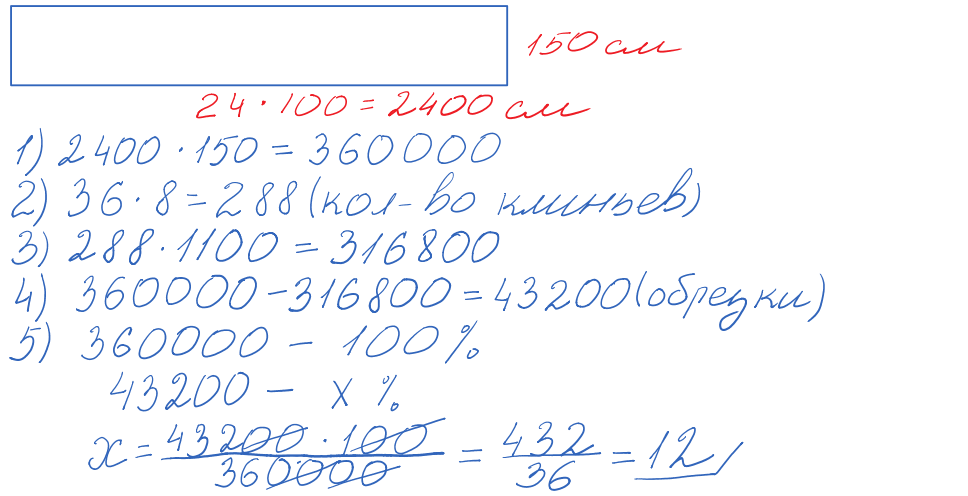 150 см
24 · 100 = 2400 см
1) 2400 · 150 = 360000
2) 36 · 8 = 288 (кол-во клиньев)
3) 288 · 1100 = 316800
4) 360000 - 316800 = 43200 (обрезки)
5) 360000 - 100 %
43200 - x %
x = 43200 · 100 / 360000 = 432 / 36 = 12